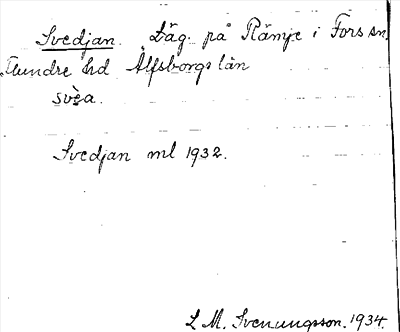 Svedjan. Läg. på Rämje i Fors sn.
Flundre hd Älfsborgs län
svèa.
Svedjan ml 1932.
L M. Svenungsson. 1934.